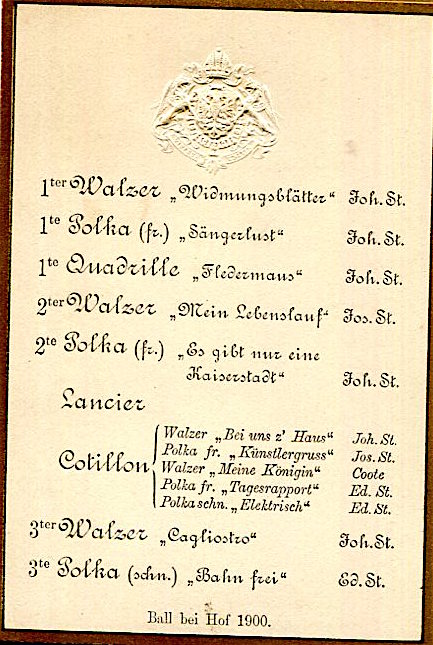 1ter Walzer „Widmungsblätter“ Joh. St.
1te Polka (fr.) „Sängerlust“ Joh. St.
1te Quadrille „Fledermaus“ Joh. St.
2ter Walzer „Mein Lebenslauf“ Jos. St.
2te Polka (fr.) „Es gibt nur eine
Kaiserstadt“ Joh. St.
Lancier
Cotillon
Walzer „Bei uns z' Haus“ Joh. St.
Polka fr. „Künstlergruss“ Jos. St.
Walzer „Meine Königin“ Coote
Polka fr. „Tagesrapport“ Ed. St.
Polka schn. „Elektrisch“ Ed. St.
3ter Walzer „Cagliostro“ Joh. St.
3te Polka (schn.) „Bahn frei“ Ed. St.
Ball bei Hof 1900.